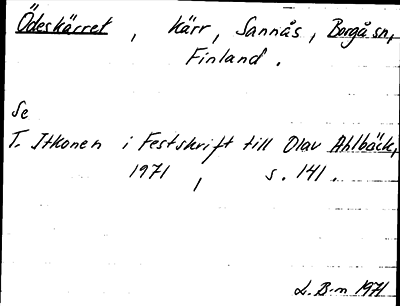 Ödeskärret, kärr, Sannås, Borgå sn,
Finland.
Se
T. Itkonen i Festskrift till Olav Ahlbäck,
1971, s. 141.
L. B-m 1971